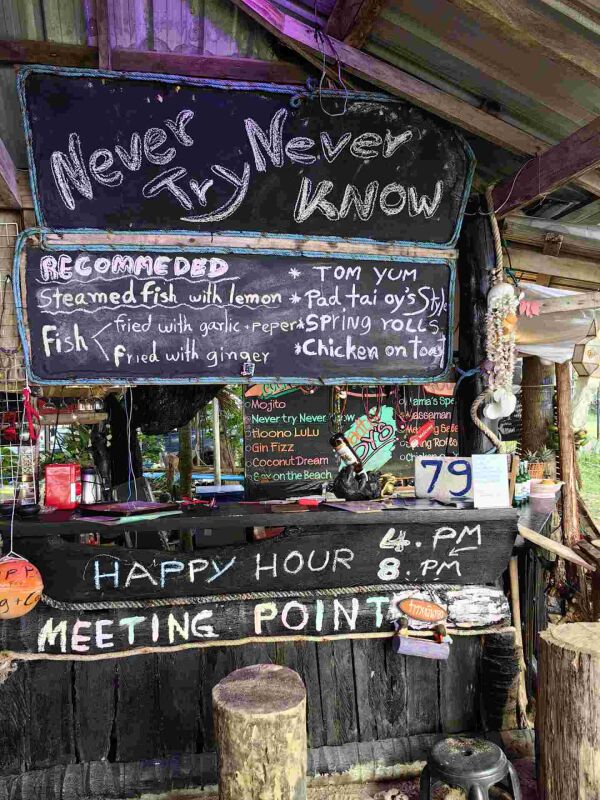 Never Never
Try KNOW
RECOMMEDED
Steamed fish with lemon
Fish < fried with garlic + peper
fried with ginger
* TOM YUM
* Pad tai oy's Style
* SPRING ROLLS
* Chicken on toast
Mojito
Never try Never
Hoono LuLu
Gin Fizz
Coconut Dream
Sex on the Beach
OY'S
Mama's Spe
Massaman
Spring Rolls
Chicken
79
HAPPY HOUR 4.PM
8.PM
MEETING POINT